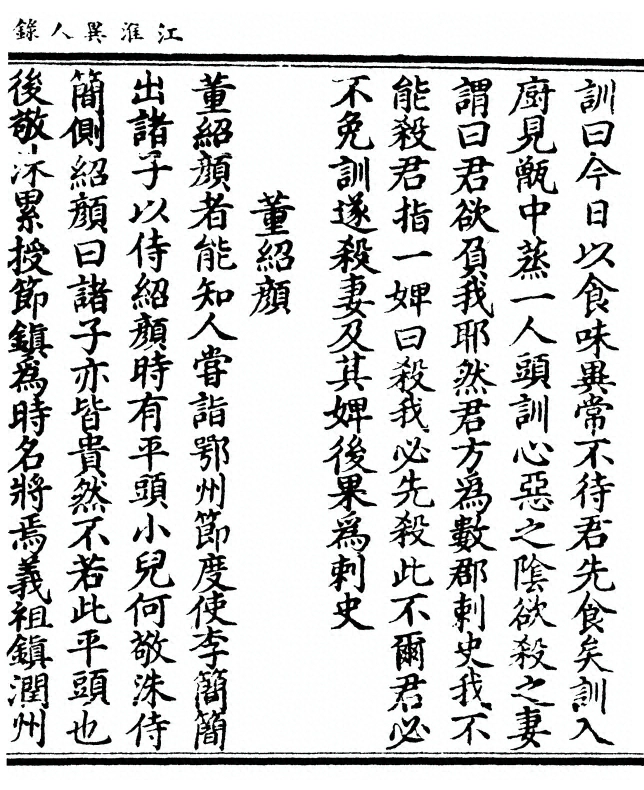 江淮異人錄
訓曰今日以食味異常不待君先食矣訓入
廚見甑中蒸一人頭訓心惡之陰欲殺之妻
謂曰君欲負我耶然君方爲數郡刺史我不
能殺君指一婢曰殺我必先殺此不爾君必
不免訓遂殺妻及其婢後果爲刺史
董紹顔
董紹顔者能知人嘗詣鄂州節度使李簡簡
出諸子以侍紹顔時有平頭小兒何敬洙侍
簡側紹顔曰諸子亦皆貴然不若此平頭也
後敬洙累授節鎭爲時名將焉義祖鎭潤州